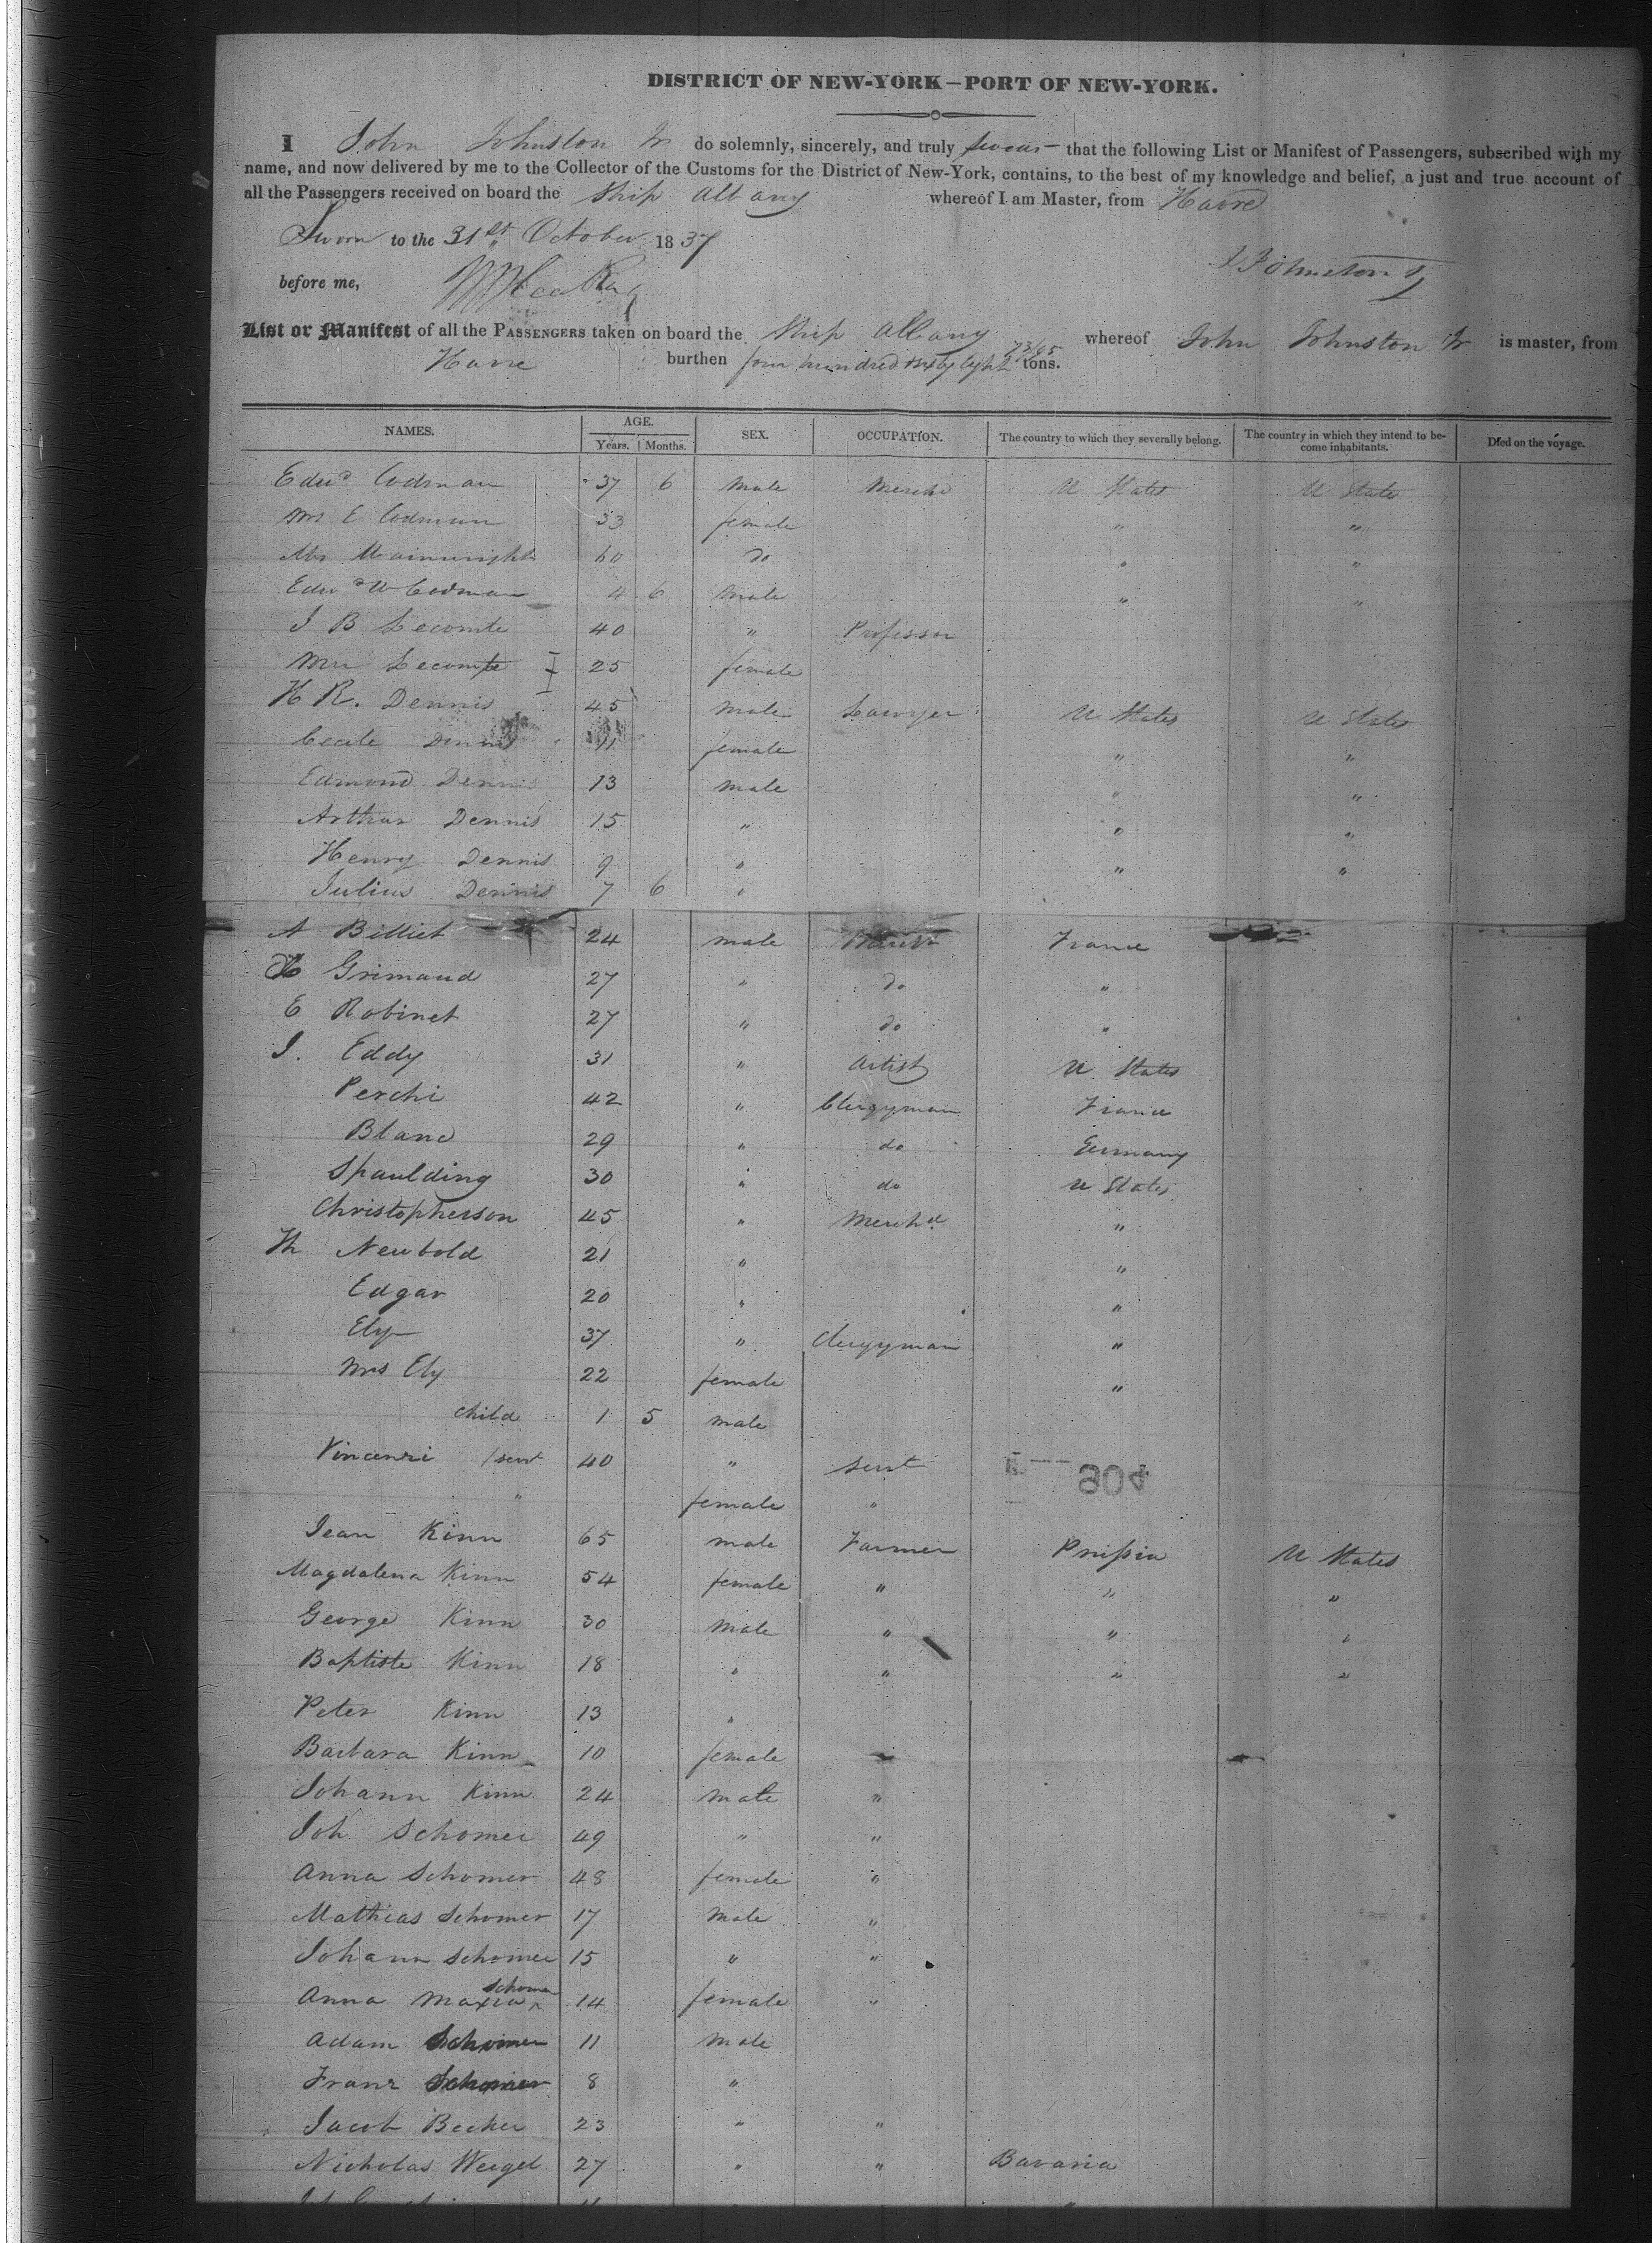 DISTRICT OF NEW-YORK—PORT OF NEW-YORK.
I John Johnston Jr do solemnly, sincerely, and truly swear that the following List or Manifest of Passengers, subscribed with my
name, and now delivered by me to the Collector of the Customs for the District of New-York, contains, to the best of my knowledge and belief, a just and true account of
all the Passengers received on board the Ship Albany whereof I am Master, from Havre
Sworn to the 31st October 1837
J Johnston Jr
before me,
List or Manifest of all the PASSENGERS taken on board the Ship Albany whereof John Johnston Jr is master, from
Havre burthen four hundred sixty eight 73/95 tons.
NAMES. AGE. Years. Months. SEX. OCCUPATION. The country to which they severally belong. The country in which they intend to become inhabitants. Died on the voyage.
Edwd Codman 37 6 male Merch U States U State
Mrs E Codman 33 female " "
Mrs Wainwright 60 do " "
Edwd W Codman 4 6 male " "
J B Lecomte 40 " Professor
Mrs Lecomte 25 female
H R. Dennis 45 male Lawyer U States U States
Cecile Dennis 11 female " "
Edmond Dennis 13 male " "
Arthur Dennis 15 " " "
Henry Dennis 9 " " "
Julius Dennis 7 6 "
A Billiet 24 male France
H Grimaud 27 " do "
E Robinet 27 " do "
J. Eddy 31 " Artist U States
Perchi 42 " Clergyman France
Blanc 29 " do Germany
Spaulding 30 " do U States
Christopherson 45 " Merchd "
Th Newbold 21 " "
Edgar 20 " "
Ely 37 " Clergyman "
Mrs Ely 22 female "
child 1 5 male
Vincenzi /servt 40 " servt
" female "
904
Jean Kinn 65 male Farmer Prussia U States
Magdalena Kinn 54 female " " "
George Kinn 30 male " " "
Baptiste Kinn 18 " " " "
Peter Kinn 13 "
Barbara Kinn 10 female
Johann Kinn 24 male "
Joh Schomer 49 " "
Anna Schomer 48 female "
Mathias Schomer 17 male "
Johann Schomer 15 " "
Anna Maria Schomer 14 female "
Adam Schomer 11 male
Franz Schomer 8 "
Jacob Becker 23 " "
Nicholas Weigel 27 " " Bavaria